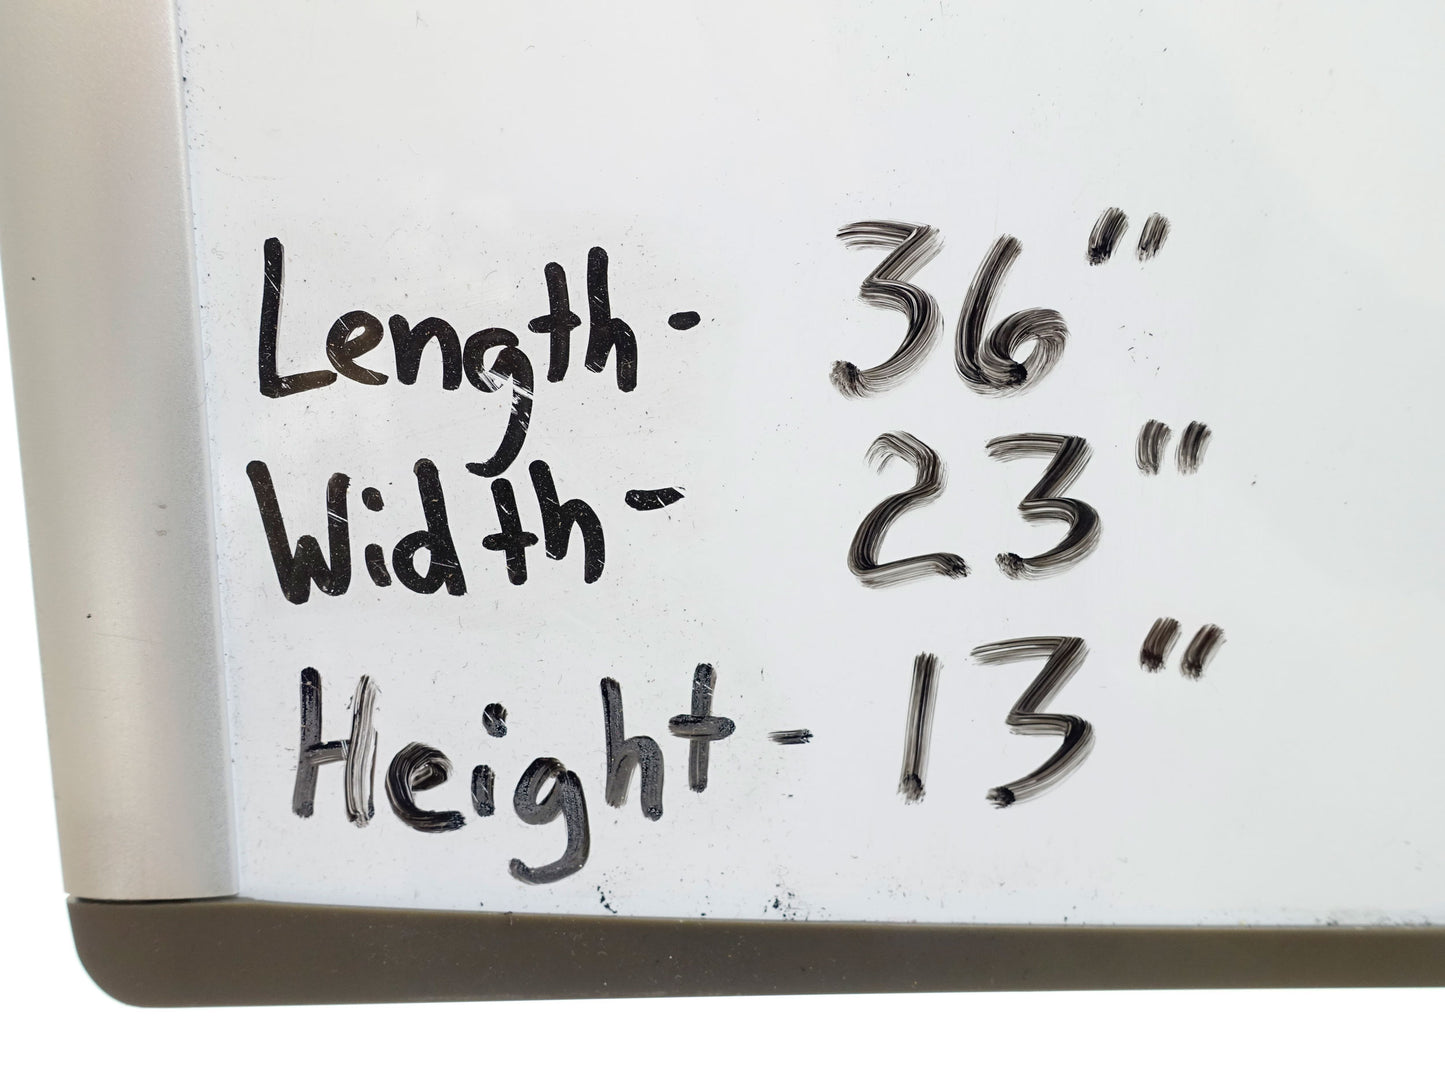 Length- 36"
Width- 23"
Height- 13"